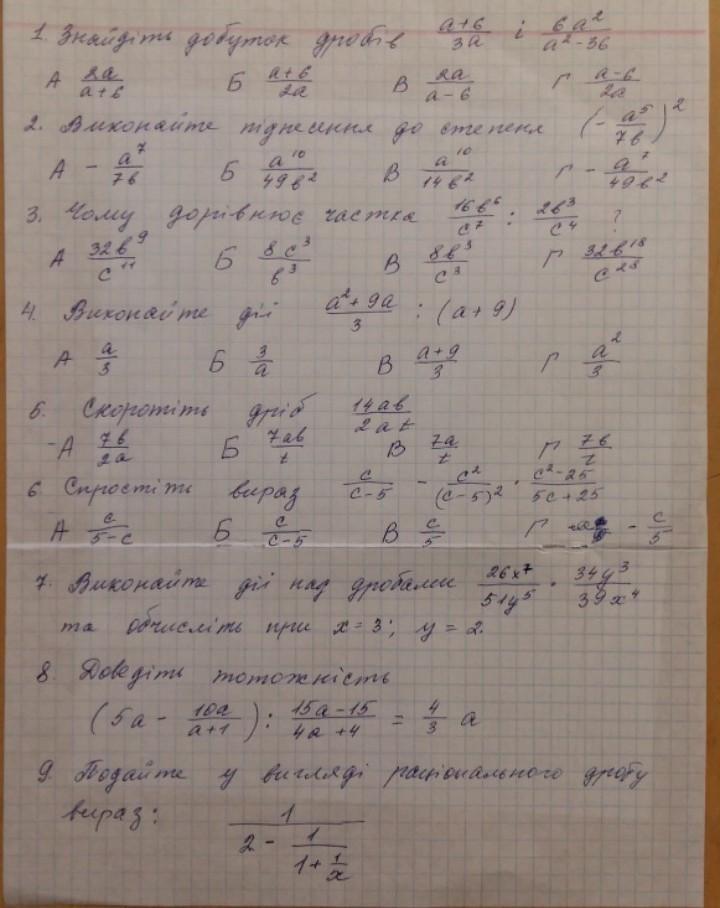 1. Знайдіть добуток дробів (a+6)/(3a) і (6a²)/(a²-36)
А 2a/(a+6) Б (a+6)/(2a) В 2a/(a-6) Г (a-6)/(2a)
2. Виконайте піднесення до степеня (-a⁵/(7b))²
А -a⁷/(7b) Б a¹⁰/(49b²) В a¹⁰/(14b²) Г -a⁷/(49b²)
3. Чому дорівнює частка 16b⁶/c⁷ : 2b³/c⁴ ?
А 32b⁹/c¹¹ Б 8c³/b³ В 8b³/c³ Г 32b¹⁸/c²⁸
4. Виконайте дії (a²+9a)/3 : (a+9)
А a/3 Б 3/a В (a+9)/3 Г a²/3
5. Скоротіть дріб 14ab/(2at)
А 7b/(2a) Б 7ab/t В 7a/t Г 7b/t
6. Спростіть вираз c/(c-5) - c²/(c-5)² · (c²-25)/(5c+25)
А c/(5-c) Б c/(c-5) В c/5 Г -c/5
7. Виконайте дії над дробами 26x⁷/(51y⁵) · 34y³/(39x⁴)
та обчисліть при x=3; y=2.
8. Доведіть тотожність
(5a - 10a/(a+1)) : (15a-15)/(4a+4) = 4/3 a
9. Подайте у вигляді раціонального дробу
вираз: 1/(2 - 1/(1+1/x))